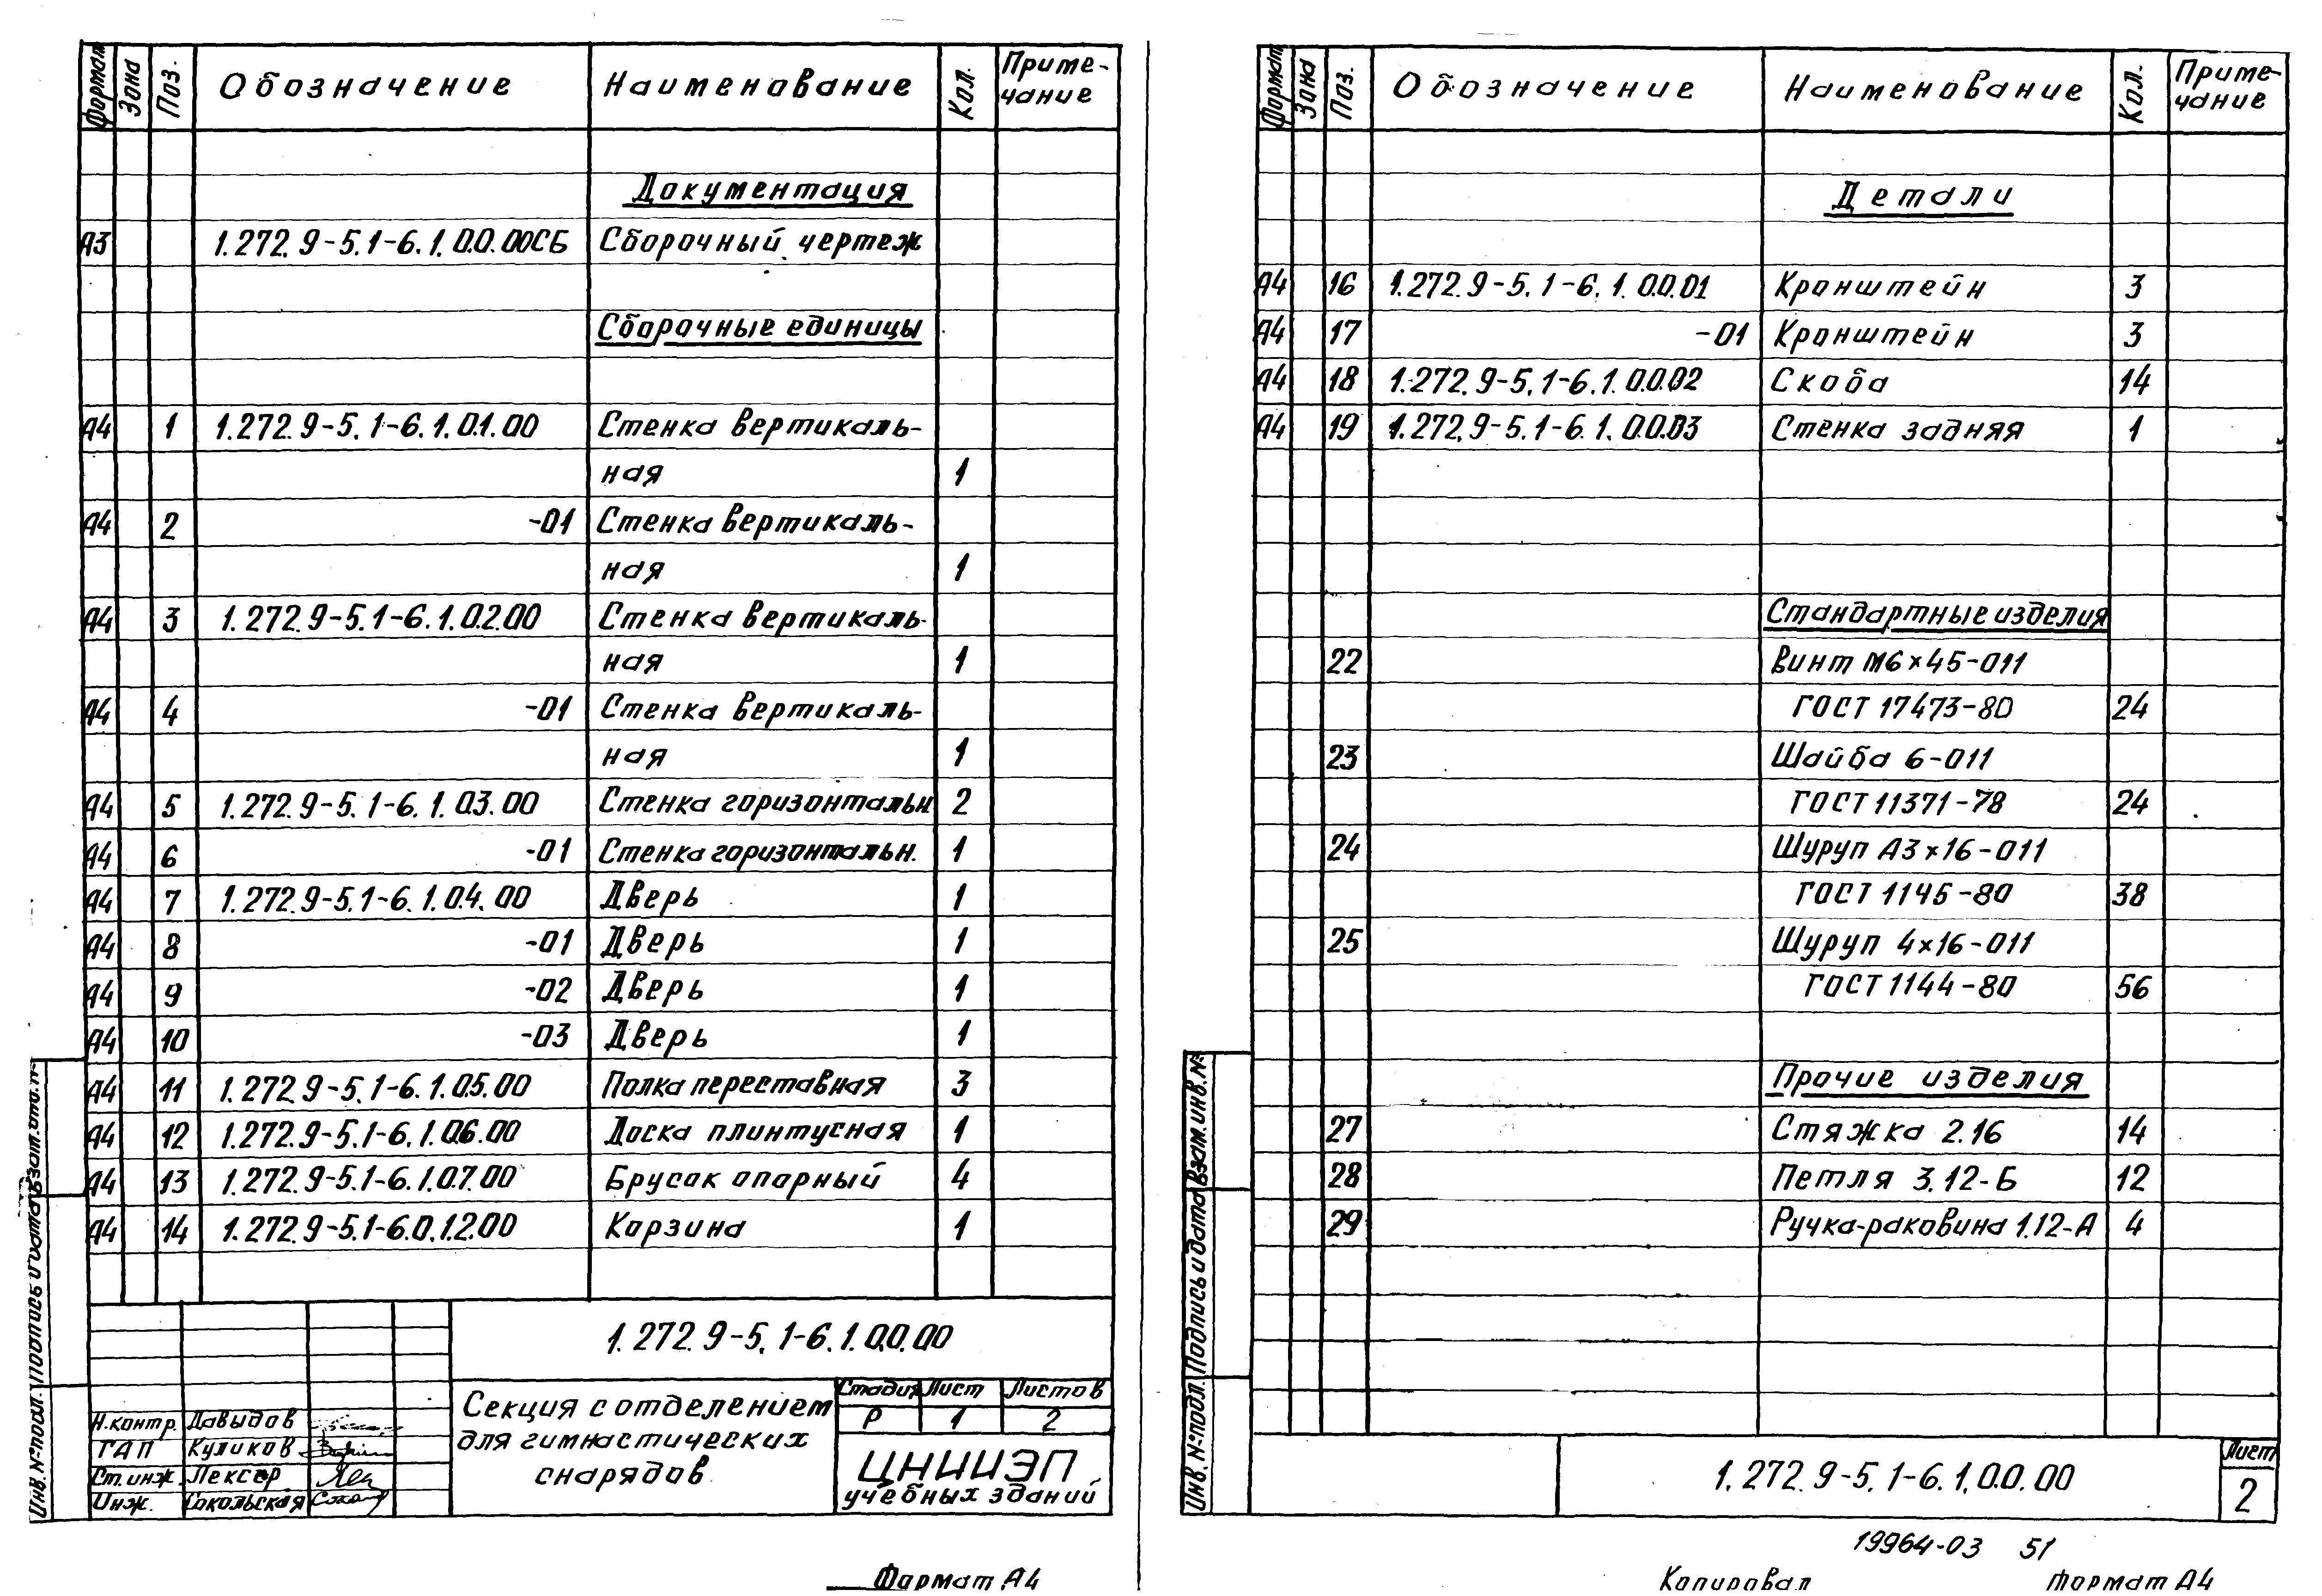 Формат Зона Поз. Обозначение Наименование Кол. Приме-
чание
Документация
А3 1.272.9-5.1-6.1.0.0.00СБ Сборочный чертеж
Сборочные единицы
А4 1 1.272.9-5.1-6.1.0.1.00 Стенка вертикаль-
ная 1
А4 2 -01 Стенка вертикаль-
ная 1
А4 3 1.272.9-5.1-6.1.0.2.00 Стенка вертикаль-
ная 1
А4 4 -01 Стенка вертикаль-
ная 1
А4 5 1.272.9-5.1-6.1.0.3.00 Стенка горизонтальн 2
А4 6 -01 Стенка горизонтальн. 1
А4 7 1.272.9-5.1-6.1.0.4.00 Дверь 1
А4 8 -01 Дверь 1
А4 9 -02 Дверь 1
А4 10 -03 Дверь 1
А4 11 1.272.9-5.1-6.1.0.5.00 Полка переставная 3
А4 12 1.272.9-5.1-6.1.0.6.00 Доска плинтусная 1
А4 13 1.272.9-5.1-6.1.0.7.00 Брусок опорный 4
А4 14 1.272.9-5.1-6.0.1.2.00 Корзина 1
1.272.9-5.1-6.1.0.0.00
Секция с отделением
для гимнастических
снарядов
Стадия Лист Листов
Р 1 2
ЦНИИЭП
учебных зданий
Н.контр. Давыдов
ГАП Куликов
Ст.инж. Лексер
Инж. Сокольская
Инв.№подл. Подпись и дата Взам.инв.№
Формат А4
Формат Зона Поз. Обозначение Наименование Кол. Приме-
чание
Детали
А4 16 1.272.9-5.1-6.1.0.0.01 Кронштейн 3
А4 17 -01 Кронштейн 3
А4 18 1.272.9-5.1-6.1.0.0.02 Скоба 14
А4 19 1.272.9-5.1-6.1.0.0.03 Стенка задняя 1
Стандартные изделия
22 Винт М6×45-011
ГОСТ 17473-80 24
23 Шайба 6-011
ГОСТ 11371-78 24
24 Шуруп А3×16-011
ГОСТ 1145-80 38
25 Шуруп 4×16-011
ГОСТ 1144-80 56
Прочие изделия
27 Стяжка 2.16 14
28 Петля 3.12-Б 12
29 Ручка-раковина 1.12-А 4
Инв.№подл. Подпись и дата Взам.инв.№
1.272.9-5.1-6.1.0.0.00
Лист
2
19964-03 51
Копировал Формат А4